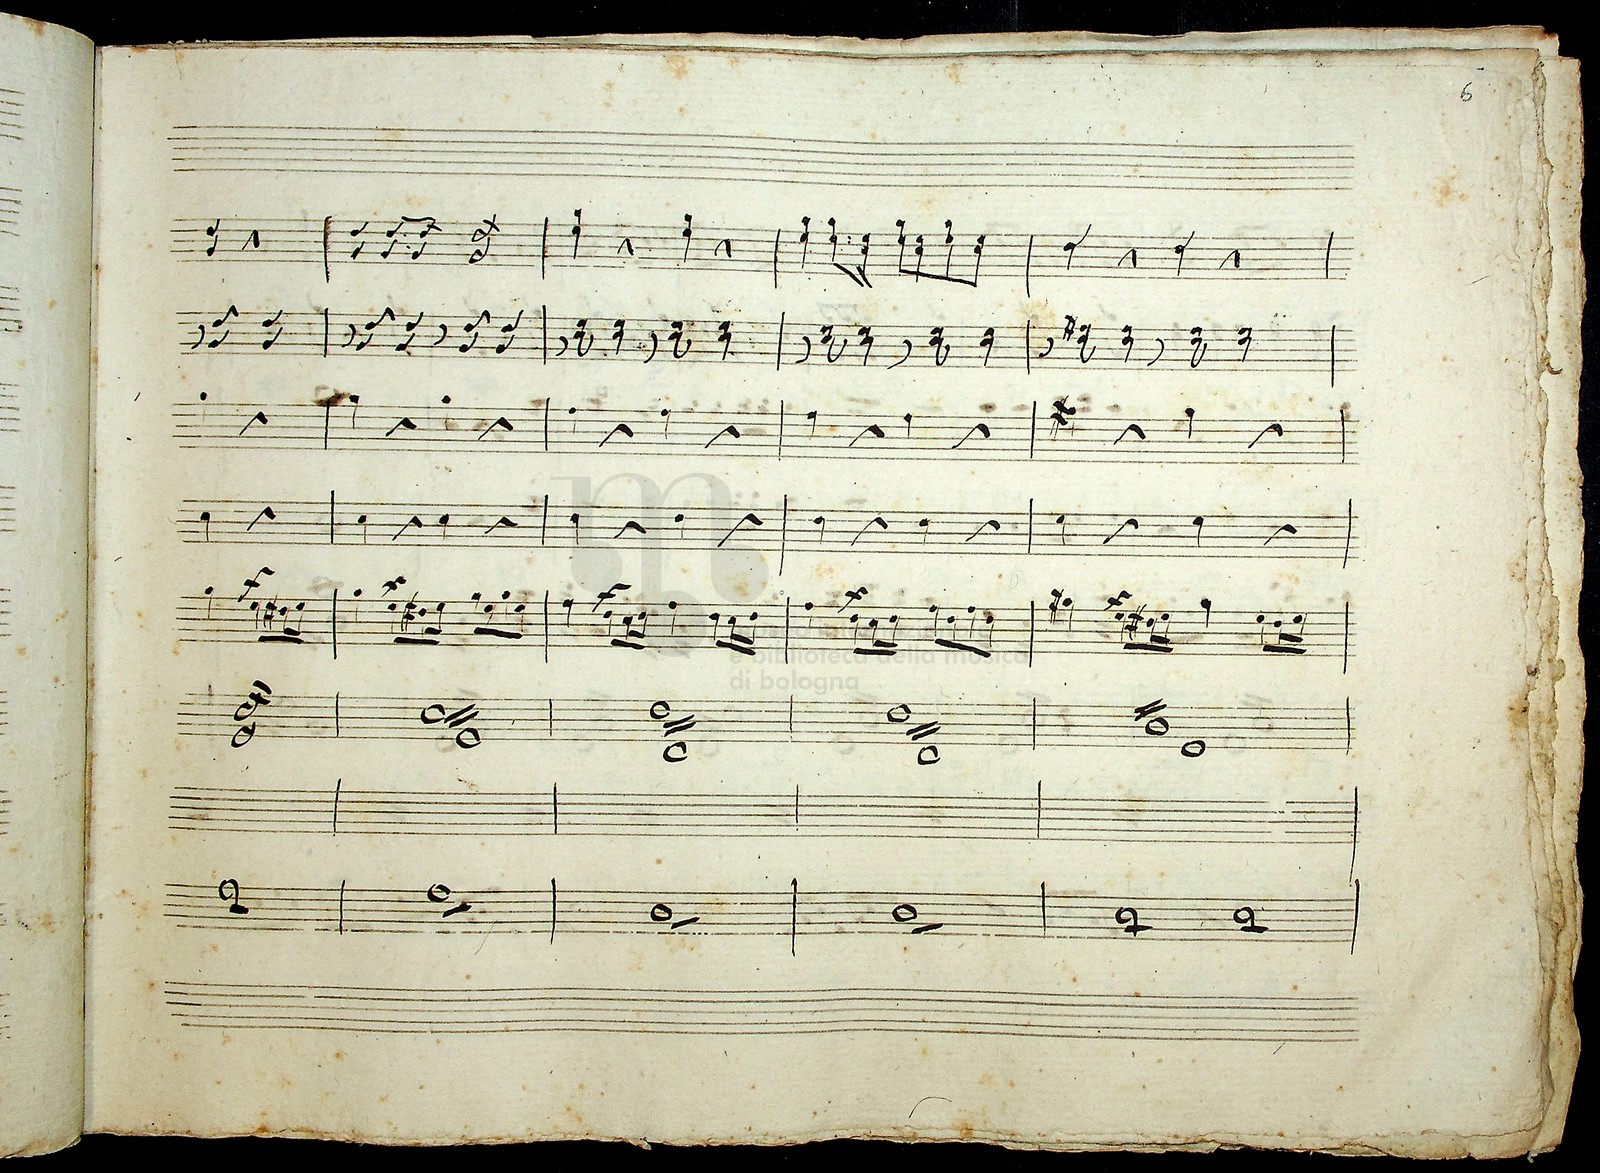 6
f f f f f
museo internazionale
e biblioteca della musica
di bologna